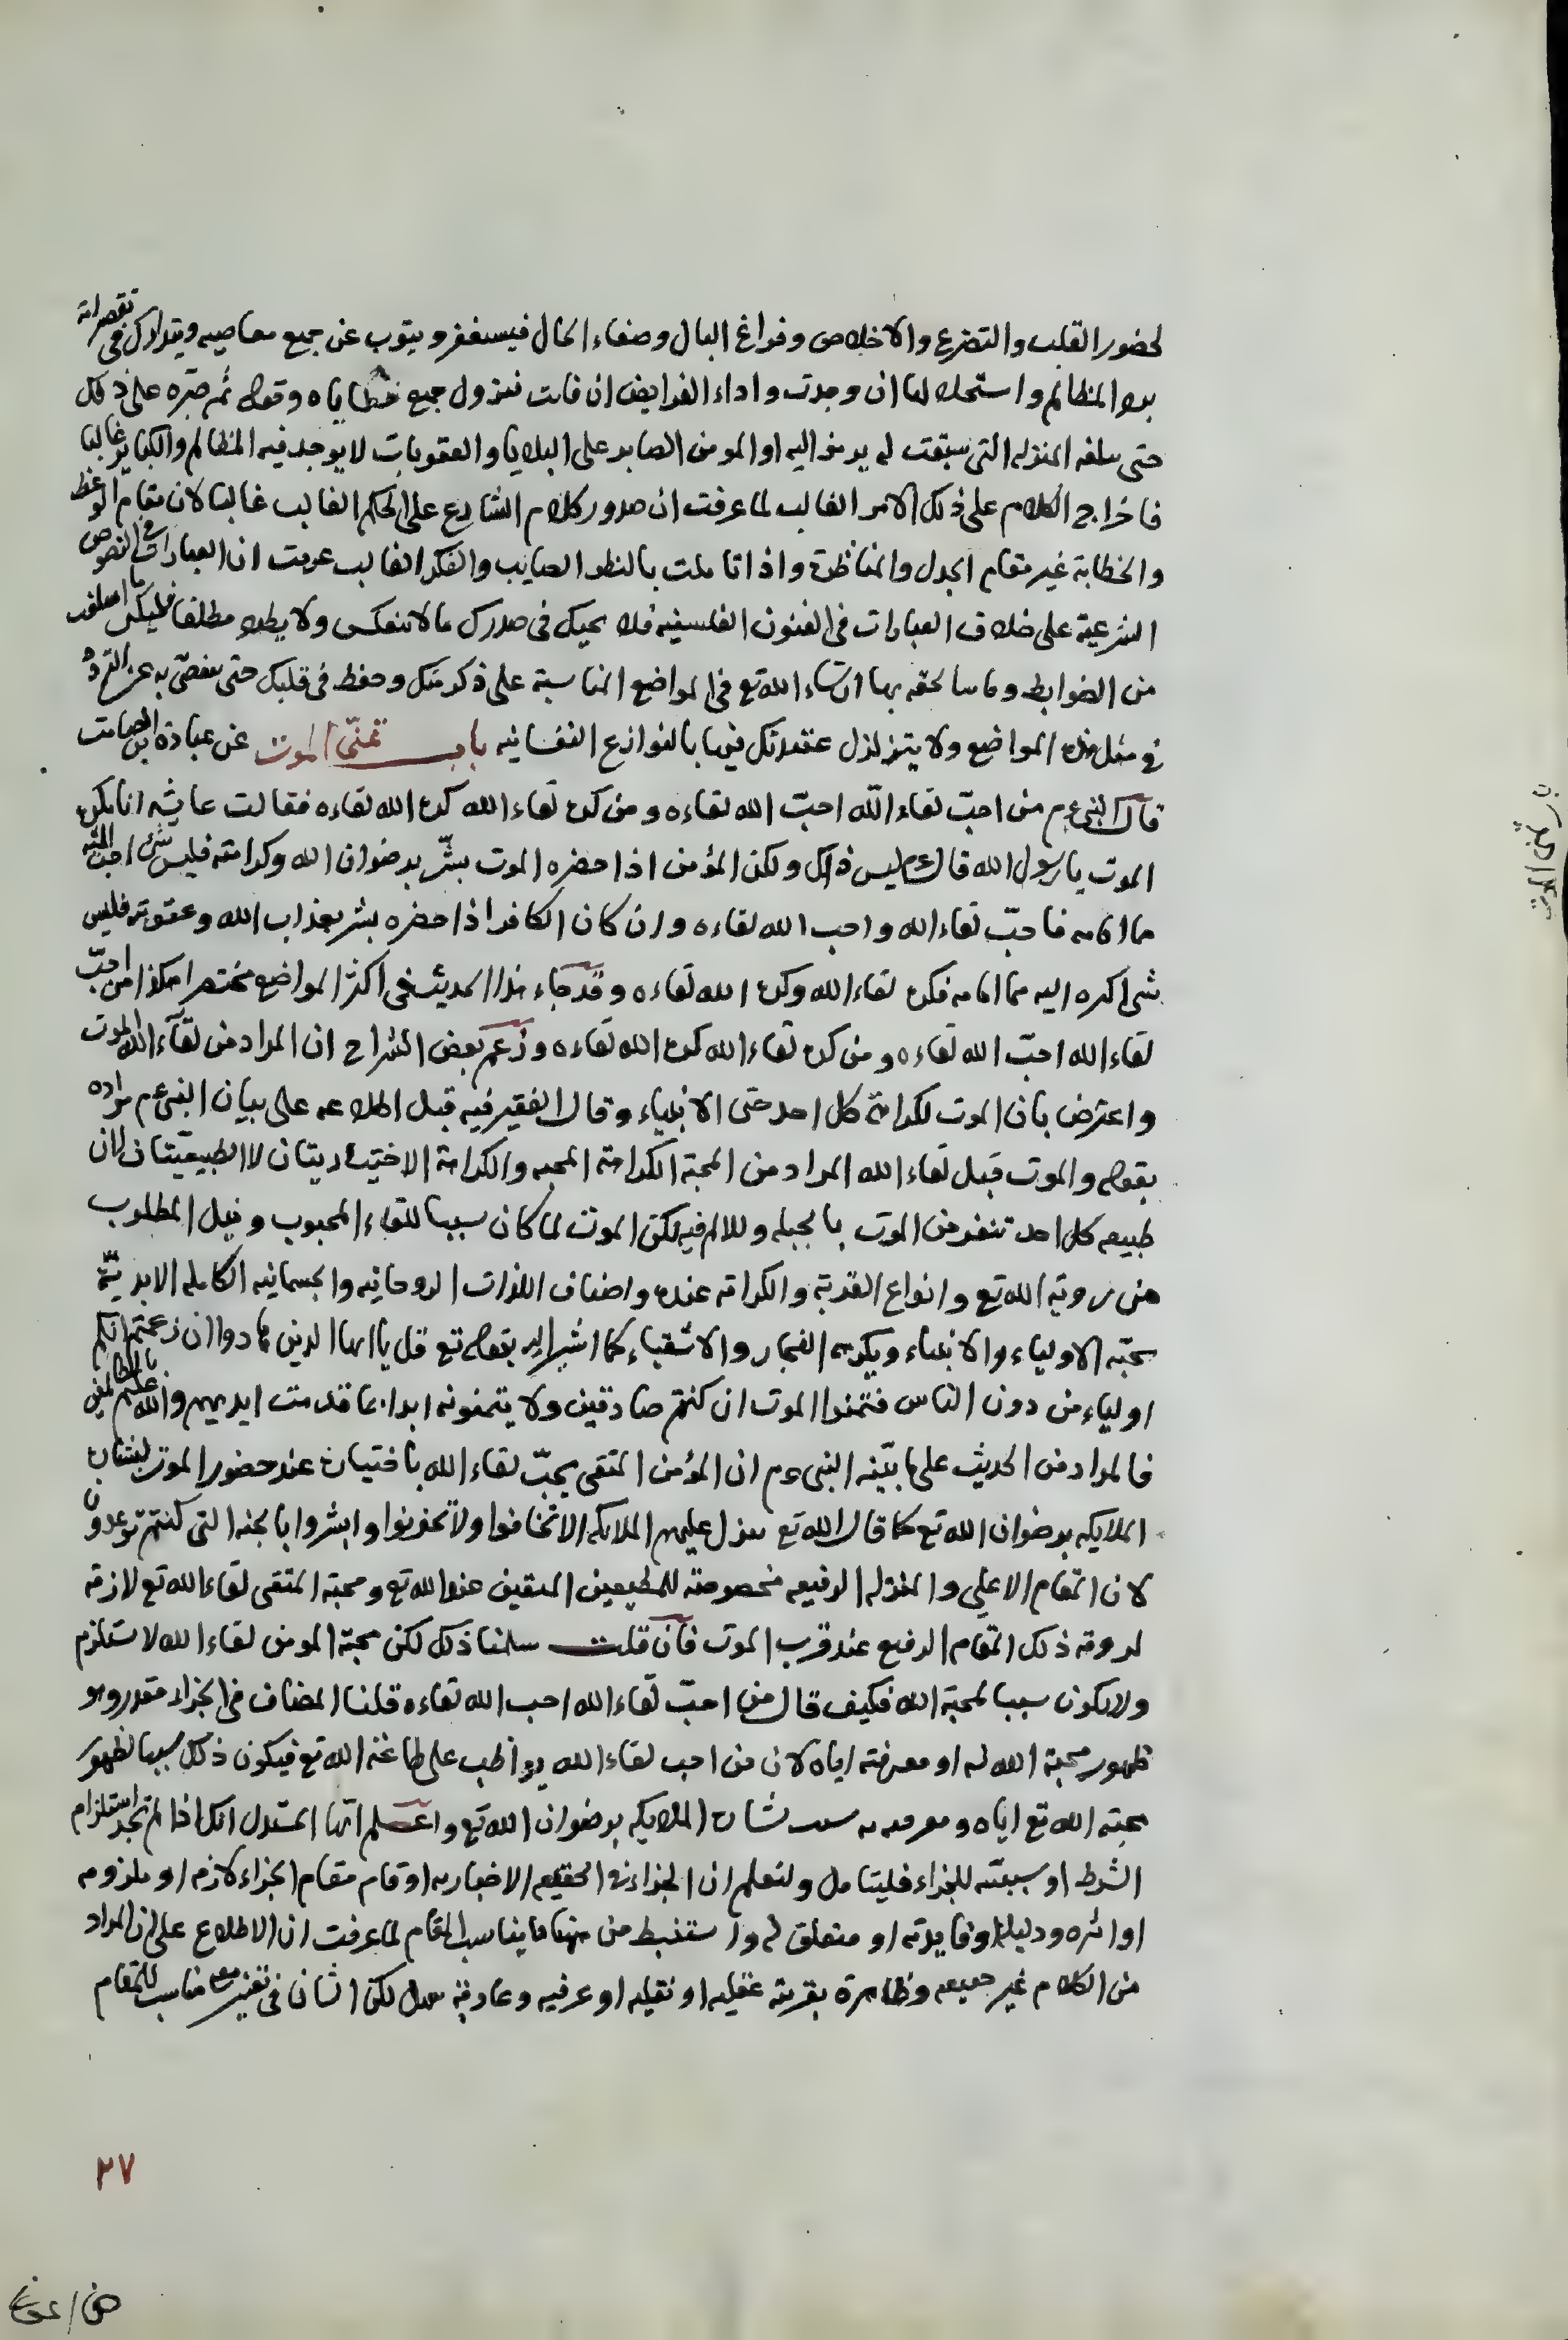 لحضور القلب والتضرع والاخلاص وفراغ البال وصفاء الحال فيستغفر ويتوب عن جميع معاصيه ويتدارك في تقصيراته
برد المظالم واستحلالها ان وجدت واداء الفرايض ان فات فيزول جميع خطاياه وقوله ثم صبره على ذلك
حتى يبلغه المنزله التي سبقت له يرمز اليه او المومن الصابر على البلايا والعقوبات لا يوجد فيه المظالم والكباير غالبا
فاخراج الكلام على ذلك الامر الغالب لما عرفت ان صدور كلام الشارع على الحكم الغالب غالبا لان مقام الوعظ
والخطابة غير مقام الجدل والمناظرة واذا تاملت بالنظر الصايب والفكر الغالب عرفت ان العبارات في النصوص
الشرعية على خلاف العبارات في الفنون الفلسفيه فلا يحيك في صدرك ما لا تنعكس ولا يطرد مطلقا فليكن ما اسلفت
من الضوابط وما سالحقه بها ان شاء الله تع في المواضع المناسبة على ذكر منك وحفظ في قلبك حتى تتفصى به عن التردد
في مثل هذه المواضع ولا يتزلزل عقيدتك فيها بالنوازع النفسانيه باب تمنى الموت عن عبادة ابن الصامت
قال النبي عم من احب لقاء الله احب الله لقاءه ومن كره لقاء الله كره الله لقاءه فقالت عايشه انا نكره
الموت يا رسول الله قال عم ليس ذلك ولكن المؤمن اذا حضره الموت بشر برضوان الله وكرامته فليس شئ احب اليه
مما امامه فاحب لقاء الله واحب الله لقاءه وان كان الكافر اذا حضره بشر بعذاب الله وعقوبته فليس
شئ اكره اليه مما امامه فكره لقاء الله وكره الله لقاءه وقد جاء هذا الحديث في اكثر المواضع مختصرا هكذا من احب
لقاء الله احب الله لقاءه ومن كره لقاء الله كره الله لقاءه وزعم بعض الشراح ان المراد من لقاء الله الموت
واعترض بان الموت لكرامة كل احد حتى الانبياء وقال الفقير فيه قبل اطلاعه على بيان النبي عم مراده
بقوله والموت قبل لقاء الله المراد من المحبة الكرامة المحبه والكرامة الاختياريتان لا الطبيعيتان لان
طبيعه كل احد تنفر من الموت بالجبله وللالم فيه لكن الموت لما كان سببا للقاء المحبوب ونيل المطلوب
من روية الله تع وانواع القربة والكرامة عنده واصناف اللذات الروحانيه والجسمانيه الكامله الابدية
يحبه الاولياء والانبياء ويكرهه الفجار والاشقياء كما اشير اليه بقوله تع قل يا ايها الذين هادوا ان زعمتم انكم
اولياء من دون الناس فتمنوا الموت ان كنتم صادقين ولا يتمنونه ابدا بما قدمت ايديهم والله عليم بالظالمين
فالمراد من الحديث على ما بينه النبي عم ان المؤمن المتقي يحب لقاء الله باختياره عند حضور الموت لبشارة
الملايكه برضوان الله تع كما قال الله تع تتنزل عليهم الملايكه الا تخافوا ولا تحزنوا وابشروا بالجنه التي كنتم توعدون
لان المقام الاعلى والمنزله الرفيعه مخصوصة للمطيعين المتقين عند الله تع ومحبة المتقي لقاء الله تع لازمة
لروية ذلك المقام الرفيع عند قرب الموت فان قلت سلمنا ذلك لكن محبة المومن لقاء الله لا ستلزم
ولا يكون سببا لمحبة الله فكيف قال من احب لقاء الله احب الله لقاءه قلنا المضاف في الجزاء مقدر وهو
ظهور محبة الله له او معرفته اياه لان من احب لقاء الله يواظب على طاعته الله تع فيكون ذلك سببا لظهور
محبة الله تع اياه ومعرفته به بسبب بشارة الملايكه برضوان الله تع واعلم ايها المستدل انك اذا لم تجد استلزام
الشرط او سببيته للجزاء فليتامل ولتعلم ان الجزاء في الحقيقه الاخبار به او قام مقام الجزاء لازمه او ملزومه
او اثره ودليله او فايدته او متعلق له واستنبط من بينها ما يناسب المقام لما عرفت ان الاطلاع على ان المراد
من الكلام غير حقيقه وظاهرة بقرينة عقليه او نقليه او عرفيه وعادية سهل لكن الشان في تعيين معنى مناسب للمقام
٢٧
باب تمنى الموت